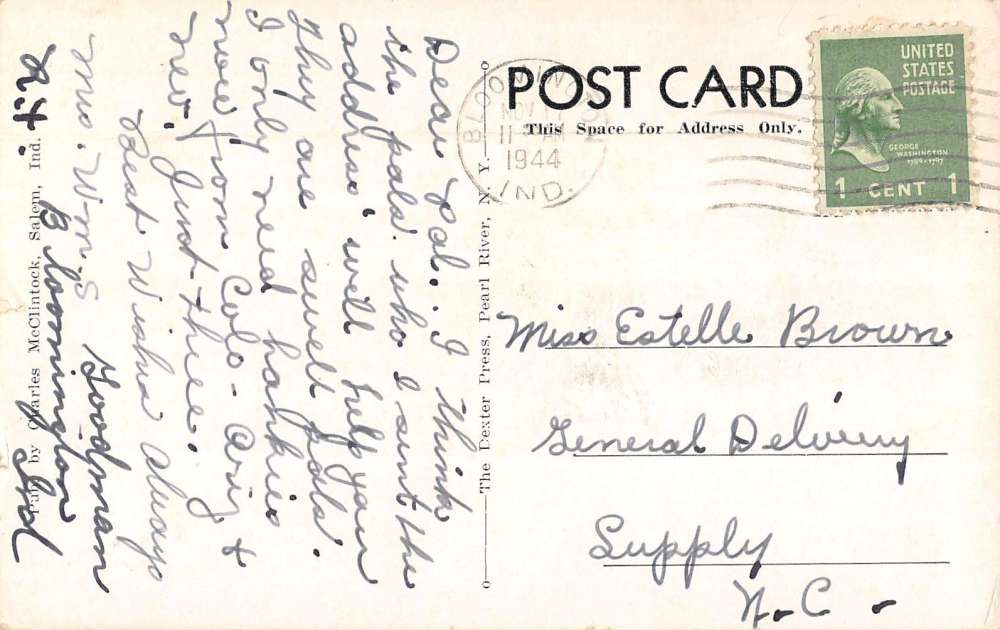 POST CARD
This Space for Address Only.
BLOOMINGTON
NOV
11 AM
1944
IND.
UNITED
STATES
POSTAGE
GEORGE
WASHINGTON
1789-1797
1 CENT 1
Miss Estelle Brown
General Delivery
Supply
N.C.
Dear Pal. I think
the pals who I sent the
address' will help you
They are swell pals.
I only need hankies
now from Colo - Ariz &
Nev. Just three.
Best Wishes always
Mrs. Wm. S Goodman
R4 Bloomington
Ind
Pub. by Charles McClintock, Salem, Ind.
The Dexter Press, Pearl River, N. Y.